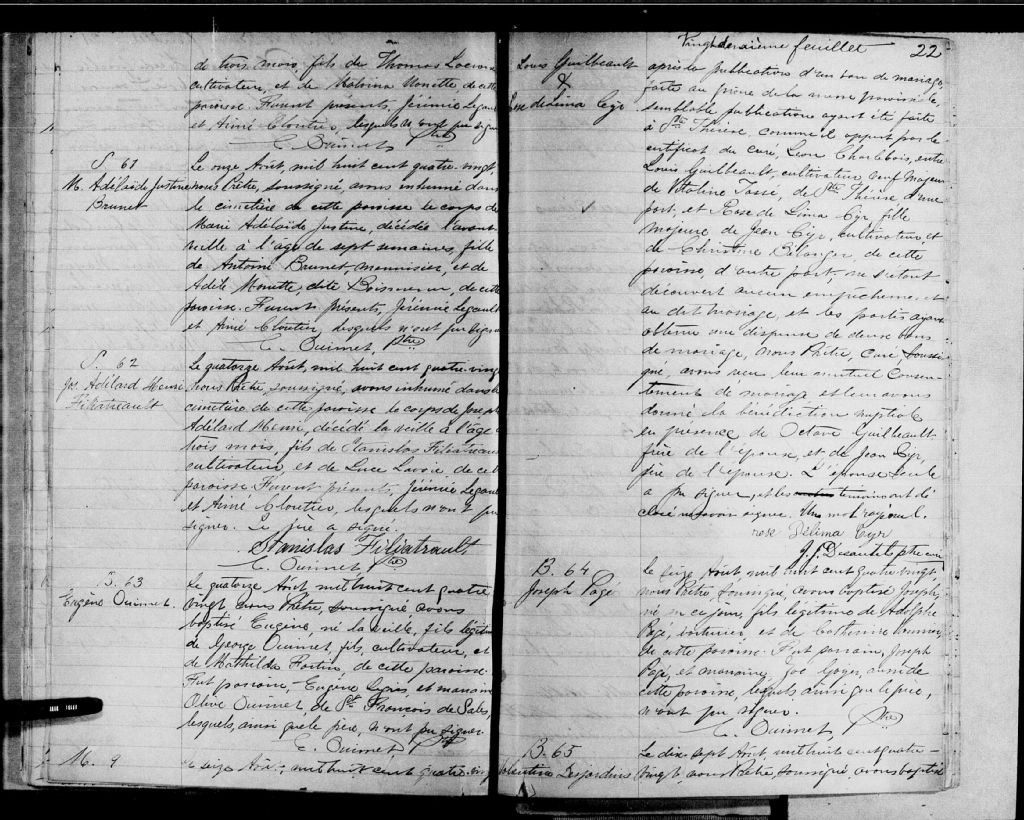 de trois mois, fils de Thomas
cultivateur, et de Malvina Monette de cette
paroisse. Furent présents, Jérémie Legault
et Aimé Cloutier, lesquels n'ont pu signer
C. Ouimet, Ptre
S. 61
M. Adélaïde Justine
Brunet
Le onze Août, mil huit cent quatre-vingt,
nous Prêtre, soussigné, avons inhumé dans
le cimetière de cette paroisse le corps de
Marie Adélaïde Justine, décédée l'avant
veille à l'âge de sept semaines, fille
de Antoine Brunet, menuisier, et de
Adèle Monette, dite Boismenu, de cette
paroisse. Furent présents, Jérémie Legault
et Aimé Cloutier, lesquels n'ont pu signer
C. Ouimet, Ptre
S. 62
Jos. Adélard Henri
Filiatreault
Le quatorze Août, mil huit cent quatre-vingt
nous Prêtre, soussigné, avons inhumé dans le
cimetière de cette paroisse le corps de Joseph
Adélard Henri, décédé la veille à l'âge
trois mois, fils de Stanislas Filiatreault
cultivateur, et de Luce Lavoie de cette
paroisse Furent présents, Jérémie Legault
et Aimé Cloutier, lesquels n'ont pu
signer. Le père a signé.
Stanislas Filiatrault
C. Ouimet Ptre
B. 63
Eugène Ouimet.
Le quatorze Août, mil huit cent quatre
vingt nous Prêtre, soussigné avons
baptisé Eugène, né la veille, fils légitime
de George Ouimet, fils, cultivateur, et
de Mathilda Fortin, de cette paroisse.
Fut parrain, Eugène et marraine
Olive Ouimet, de St François de Sales,
lesquels, ainsi que le père, n'ont pu signer
C. Ouimet Ptre
M. 9
Le seize Août, mil huit cent quatre-vingt
Vingt deuxième feuillet 22
Louis Guilbeault
&
Rose de Lima Cyr
après la publication d'un ban de mariage,
faite au prône de la messe paroissiale,
semblable publication ayant été faite
à Ste Thérèse, comme il appert par le
certificat du curé, Léon Charlebois, entre
Louis Guilbeault, cultivateur veuf majeur
de Vitaline Tassé, de Ste Thérèse d'une
part, et Rose de Lima Cyr, fille
majeure de Jean Cyr, cultivateur, et
de Christine Bélanger, de cette
paroisse, d'autre part, ne s'étant
découvert aucun empêchement
au dit mariage, et les parties ayant
obtenu une dispense de deux bans
de mariage, nous Prêtre, Curé soussi-
gné, avons reçu leur mutuel consen-
tement de mariage et leur avons
donné la bénédiction nuptiale
en présence de Octave Guilbeault
frère de l'époux, et de Jean Cyr,
père de l'épouse. L'épouse seule
a pu signer, et les témoins ont dé
claré ne savoir signer. Un mot rayé nul.
rose Délima Cyr
J. J. Desautels ptre curé
B. 64
Joseph Pagé
Le seize Août mil huit cent quatre vingt,
nous Prêtre Soussigné, avons baptisé Joseph,
né en ce jour, fils légitime de Adolphe
Pagé, voiturier, et de Catherine
de cette paroisse. Fut parrain, Joseph
Pagé, et marraine, Goyer, aussi de
cette paroisse, lesquels ainsi que le père,
n'ont pu signer.
C. Ouimet, Ptre
B. 65
Desjardins
Le dix sept Août mil huit cent quatre-
vingt, nous Prêtre Soussigné, avons baptisé